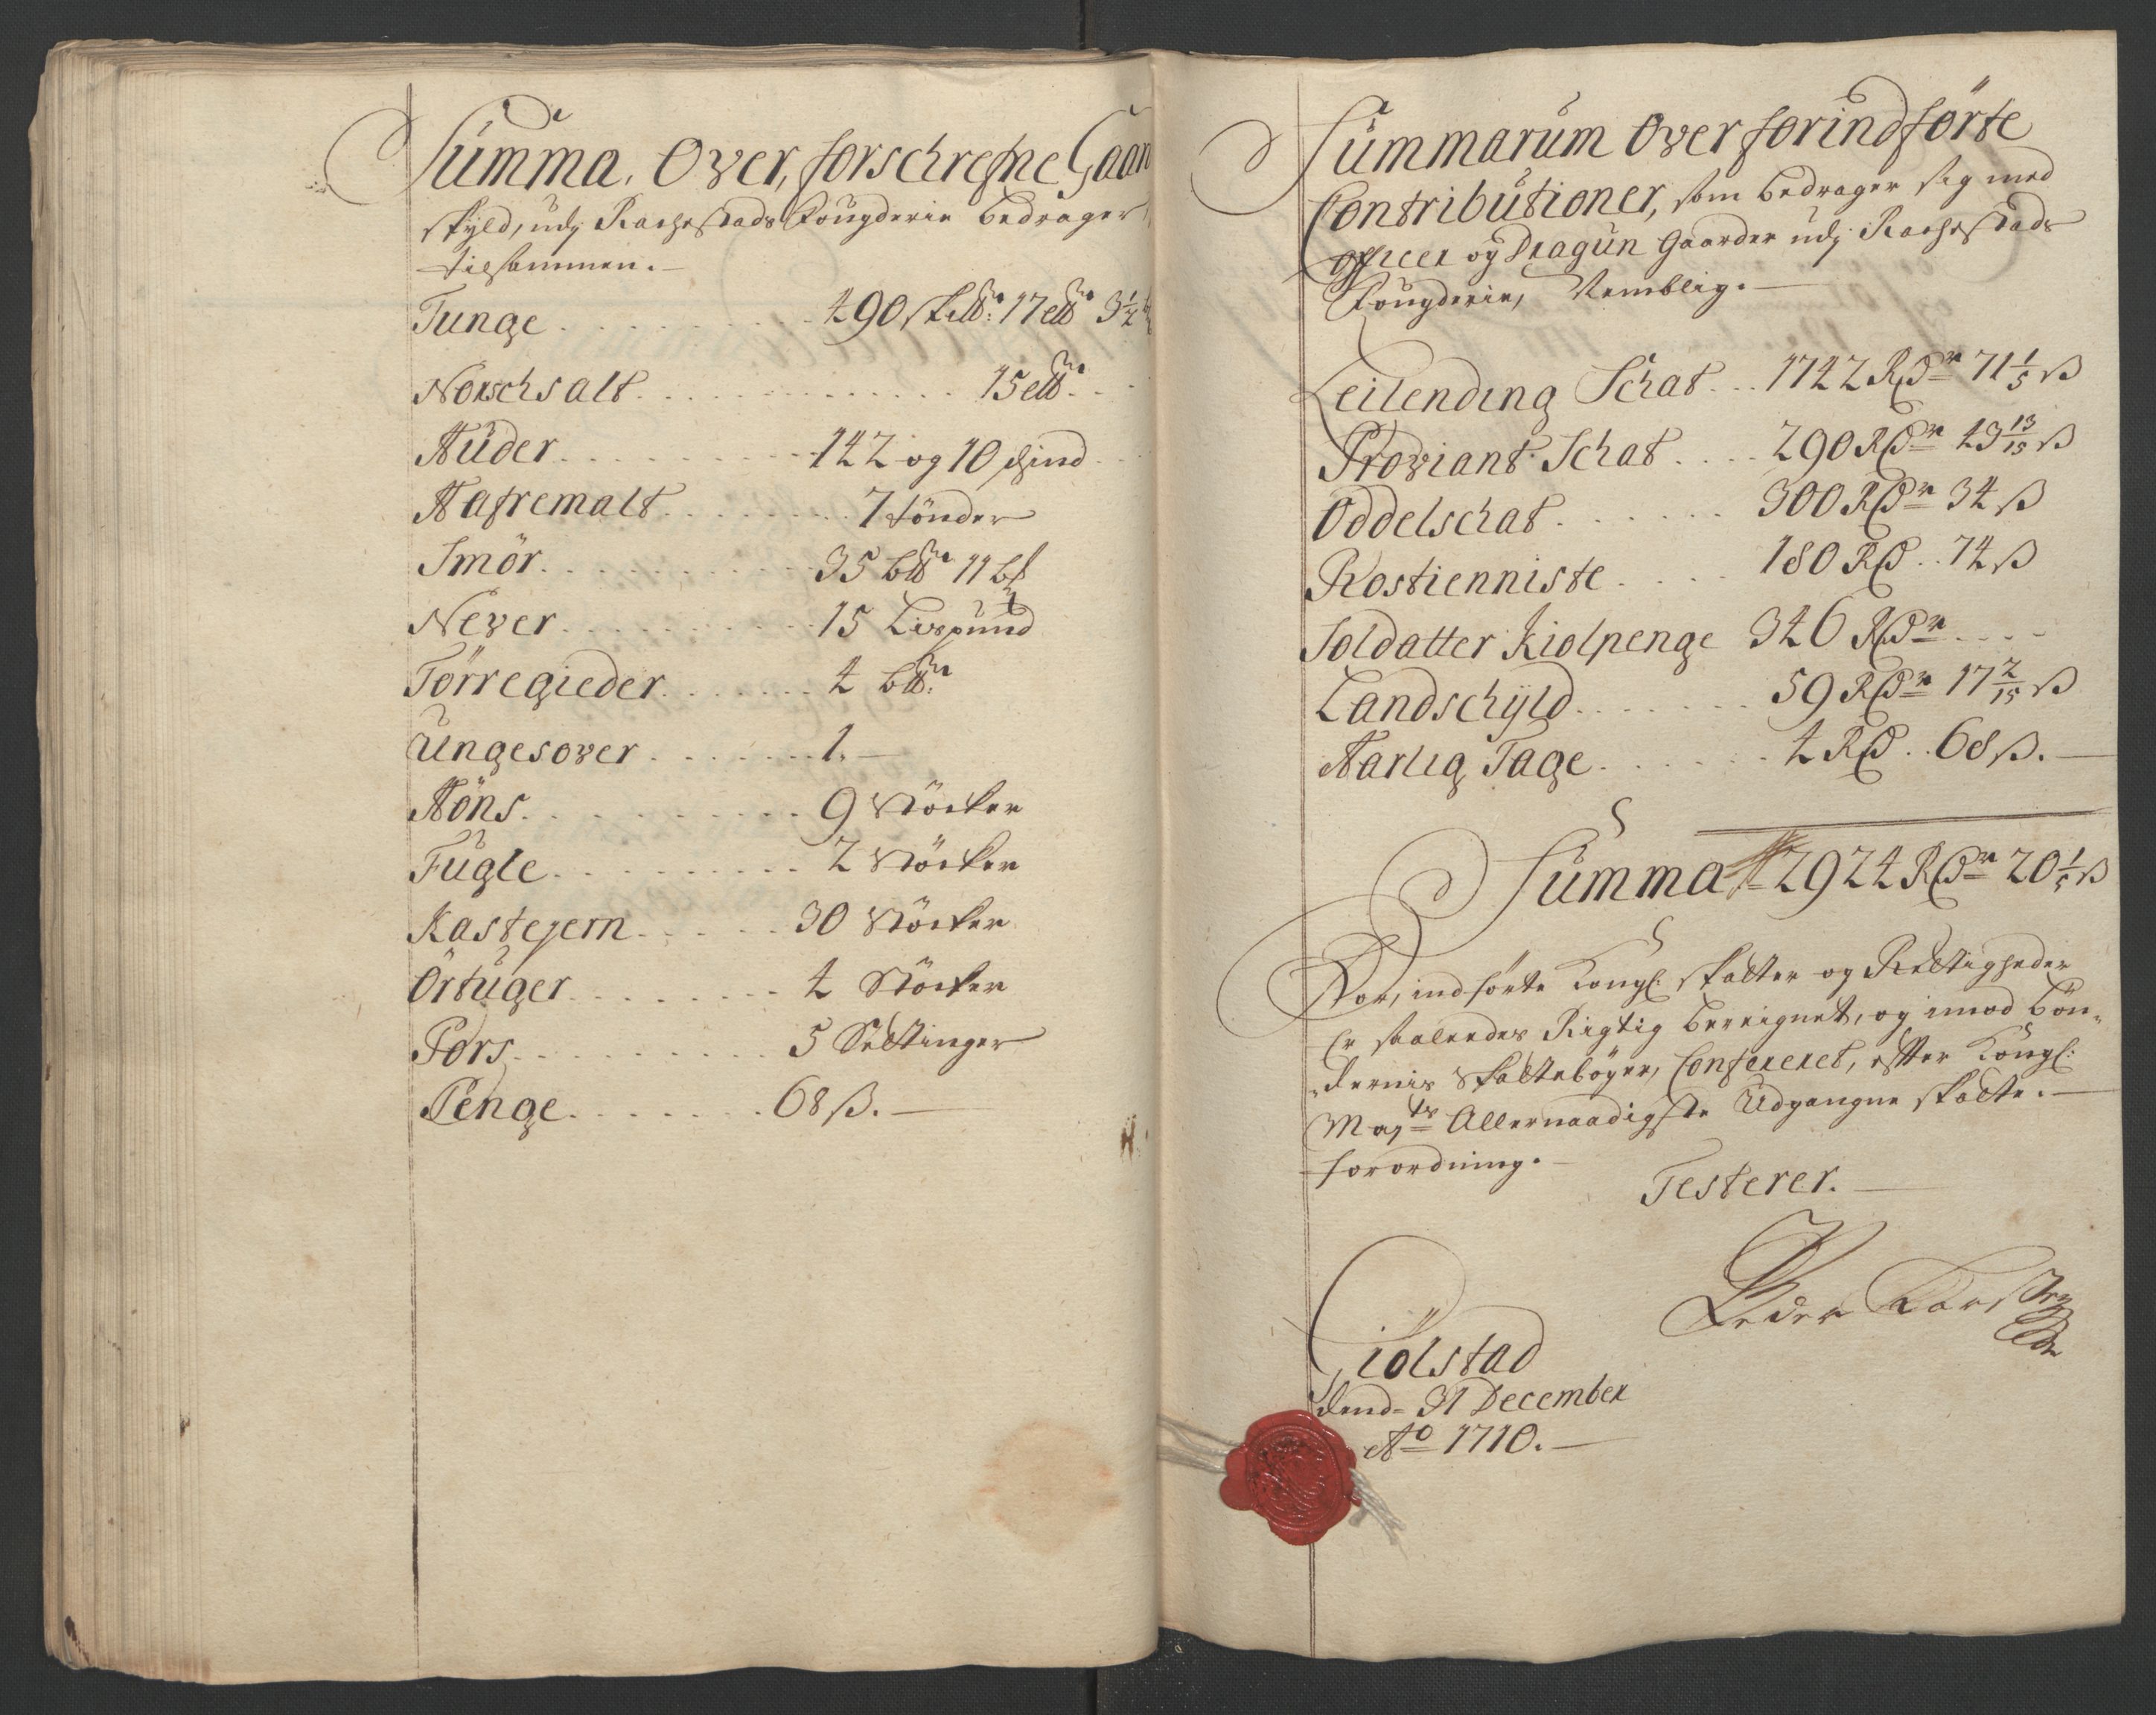 Summa, Over, forschrefne Gaar
skyld, udj Rachestads Fougderie bedrager
tilsammen.
Tunge . . . . . . . . . 490 sk℔: 17 l℔ 3½
Norschsalt . . . . . . . . . 15 l℔
Huder . . . . . . . . . 142 og 10 skind
Hafremalt . . . . . . . . . 7 tönder
Smör . . . . . . . . . 35 b℔ 11
Never . . . . . . . . . 15 Lispund
Törregieder . . . . . . . . . 4 b℔:
Ungesover . . . . . . . . . 1.
Höns . . . . . . . . . 9 Stöcker
Fugle . . . . . . . . . 2 Stöcker
Kastejern . . . . . . . . . 30 Stöcker
Örtuger . . . . . . . . . 4 Stöcker
Pors . . . . . . . . . 5 Settinger
Penge . . . . . . . . . 68 ß.
Summarum Over forindförte
Contributioner, som bedrager sig med
Officer og Dragun Gaarder udj Rachestads
Fougderie, Nemblig.
Leilending Schat . . . 1742 Rdr 71 1/5 ß
Proviant Schat . . . . 290 Rdr 43 13/15 ß
Oddelschat . . . . . . 300 Rdr 34 ß
Rostienniste . . . . 180 Rd . . 74 ß
Soldatter Kiolpenge 346 Rdr . . . .
Landschÿld . . . . . . 59 Rdr 17 2/15 ß
Aarlig Tage . . . . . . 4 Rd . . 68 ß.
Summa 2924 Rdr 20 1/5 ß
For, indförte Kongl: skatter og Rettigheder
Er saaledes Rigtig beregnet, og imod bön-
dernis Skattebøger, Confereret, efter Kongl:
Mayts Allernaadigste Udgangne skatte.
forordning.
Testerer.
Peder Karsten
Giölstad
dend= 31 December
Ao 1710.